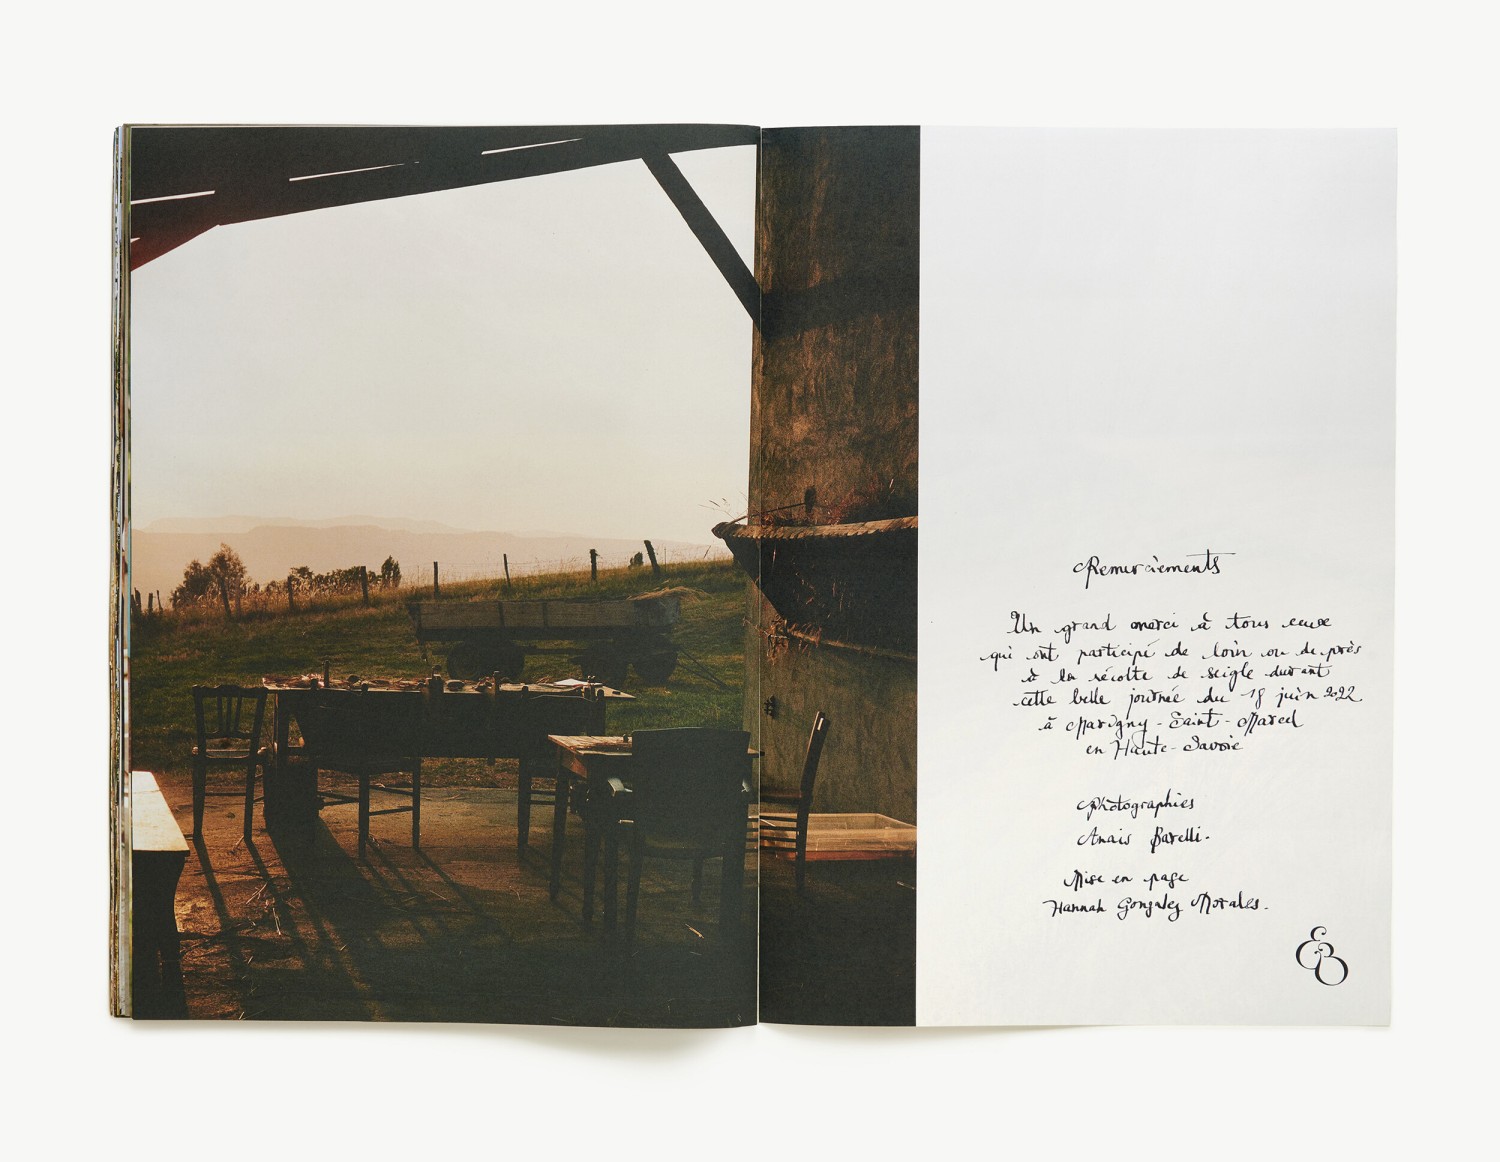 Remerciements
Un grand merci à tous ceux
qui ont participé de loin ou de près
à la récolte de seigle durant
cette belle journée du 18 juin 2022
à Marigny-Saint-Marcel
en Haute-Savoie
Photographies
Anaïs Barelli.
Mise en page
Hannah Gonzalez Morales.
EB